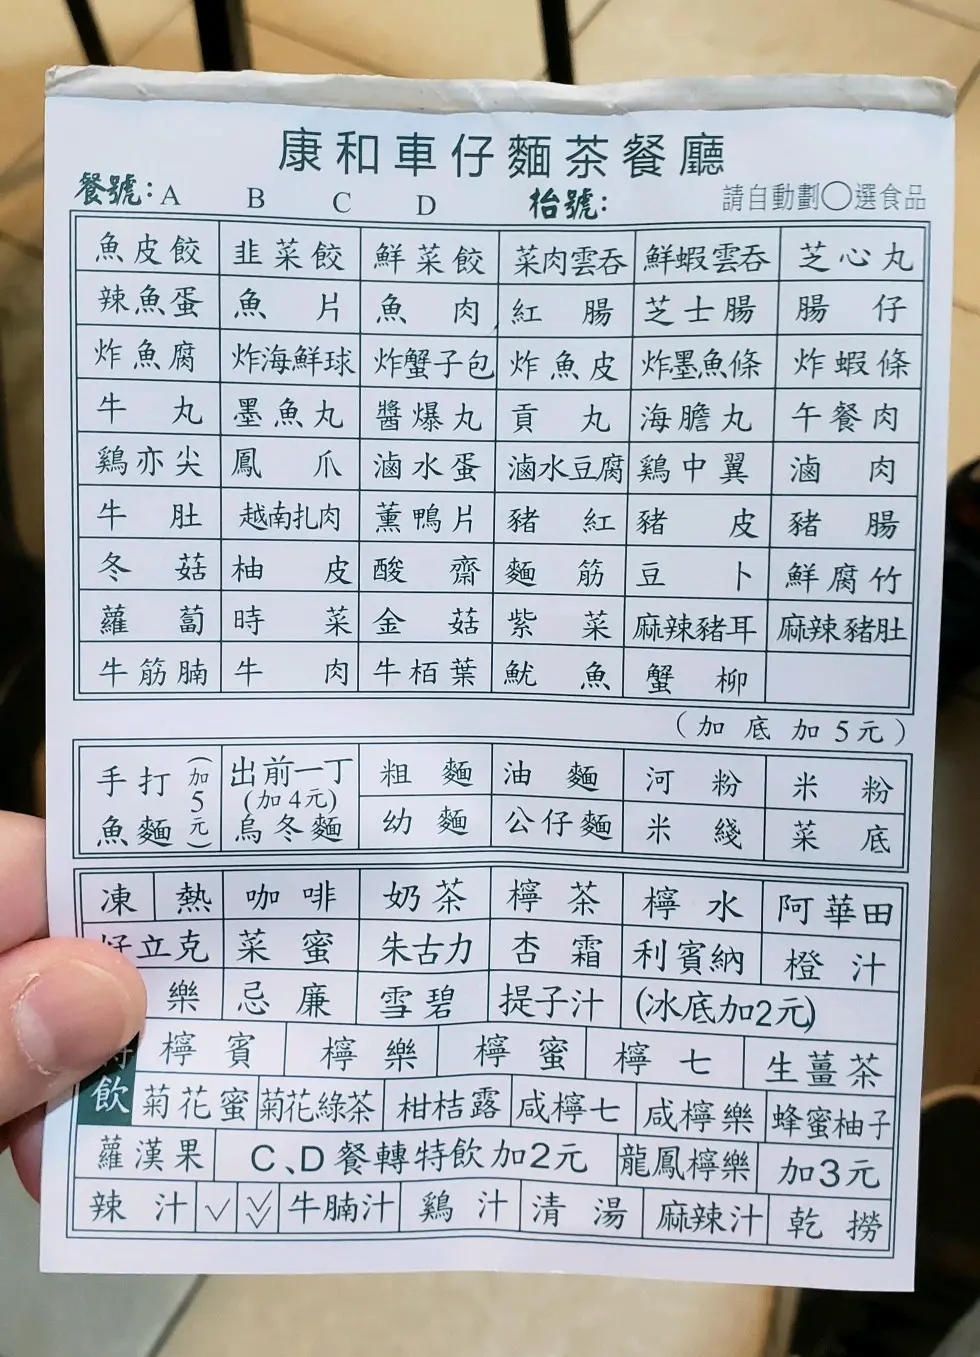 康和車仔麵茶餐廳
餐號：A B C D 枱號： 請自動劃○選食品
魚皮餃 韭菜餃 鮮菜餃 菜肉雲吞 鮮蝦雲吞 芝心丸
辣魚蛋 魚片 魚肉 紅腸 芝士腸 腸仔
炸魚腐 炸海鮮球 炸蟹子包 炸魚皮 炸墨魚條 炸蝦條
牛丸 墨魚丸 醬爆丸 貢丸 海膽丸 午餐肉
鷄亦尖 鳳爪 滷水蛋 滷水豆腐 鷄中翼 滷肉
牛肚 越南扎肉 薰鴨片 豬紅 豬皮 豬腸
冬菇 柚皮 酸齋 麵筋 豆卜 鮮腐竹
蘿蔔 時菜 金菇 紫菜 麻辣豬耳 麻辣豬肚
牛筋腩 牛肉 牛栢葉 魷魚 蟹柳
（加底加5元）
手打魚麵（加5元） 出前一丁(加4元)烏冬麵 粗麵 油麵 河粉 米粉
幼麵 公仔麵 米綫 菜底
凍 熱 咖啡 奶茶 檸茶 檸水 阿華田
好立克 菜蜜 朱古力 杏霜 利賓納 橙汁
樂 忌廉 雪碧 提子汁 (冰底加2元)
飲 檸賓 檸樂 檸蜜 檸七 生薑茶
菊花蜜 菊花綠茶 柑桔露 咸檸七 咸檸樂 蜂蜜柚子
蘿漢果 C、D餐轉特飲加2元 龍鳳檸樂 加3元
辣汁 ✓ ✓✓ 牛腩汁 鷄汁 清湯 麻辣汁 乾撈